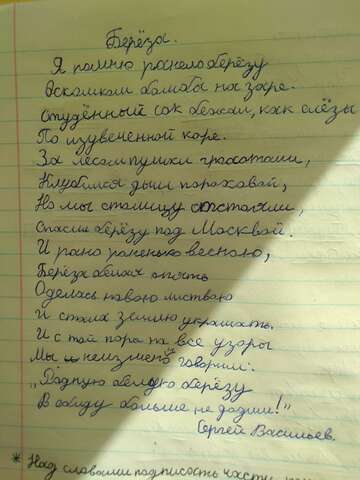 Берёза.
Я помню ранело берёзу
Осколком бомба на заре.
Студённый сок бежал, как слёзы
По изувеченной коре.
За лесом пушки грахотали,
Клубился дым пороховой,
Но мы столицу отстояли,
Спасли берёзу под Москвой.
И рано раненько весною,
Берёза белая опять
Оделась новою листвою
И стала землю украшать.
И с той пора на все узоры
Мы неизменно говорим:
„Родную белую берёзу
В обиду больше не дадим!"
Сергей Васильев.
* Над словами подписать части